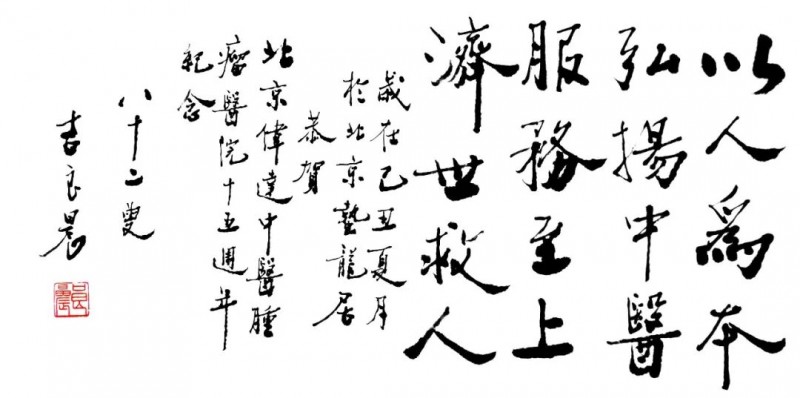 以人爲本
弘揚中醫
服務至上
濟世救人
歲在己丑夏月
於北京藝龍居
恭賀
北京偉達中醫腫
瘤醫院十五週年
紀念
八十二叟
吉良晨